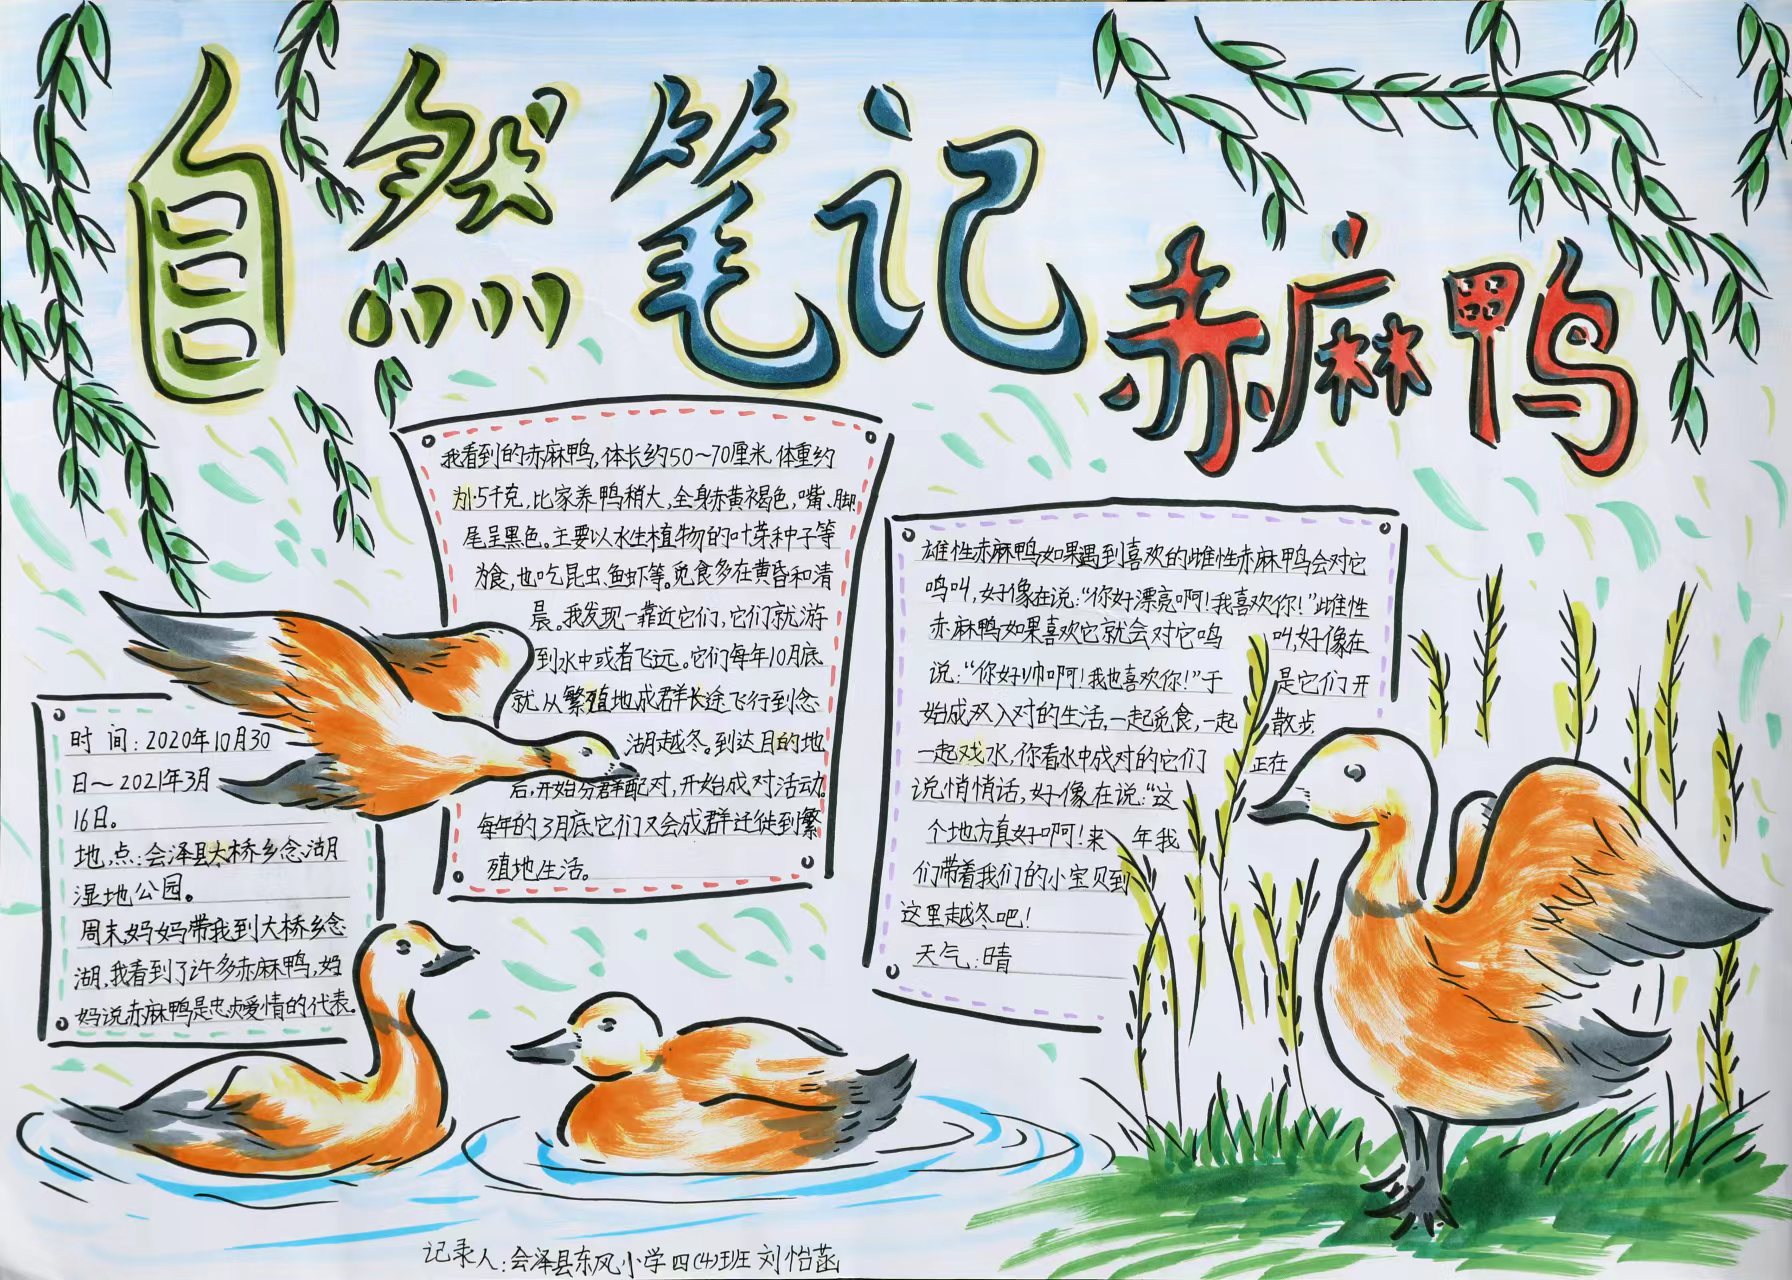 自然笔记
赤麻鸭
时间:2020年10月30
日~2021年3月
16日。
地点:会泽县大桥乡念湖
湿地公园。
周末,妈妈带我到大桥乡念
湖,我看到了许多赤麻鸭,妈
妈说赤麻鸭是忠贞爱情的代表。
我看到的赤麻鸭,体长约50~70厘米,体重约
为1.5千克,比家养鸭稍大,全身赤黄褐色,嘴、脚、
尾呈黑色。主要以水生植物的叶芽种子等
为食,也吃昆虫、鱼虾等。觅食多在黄昏和清
晨。我发现一靠近它们,它们就游
到水中或者飞远。它们每年10月底
就从繁殖地成群长途飞行到念
湖越冬。到达目的地
后,开始分群配对,开始成对活动。
每年的3月底它们又会成群迁徙到繁
殖地生活。
雄性赤麻鸭如果遇到喜欢的雌性赤麻鸭会对它
鸣叫,好像在说:“你好漂亮啊!我喜欢你!”雌性
赤麻鸭如果喜欢它就会对它鸣叫,好像在
说:“你好帅啊!我也喜欢你!”于是它们开
始成双入对的生活,一起觅食,一起散步,
一起戏水,你看水中成对的它们正在
说悄悄话,好像在说:“这
个地方真好啊!来年我
们带着我们的小宝贝到
这里越冬吧!
天气:晴
记录人:会泽县东风小学四(4)班 刘怡菡